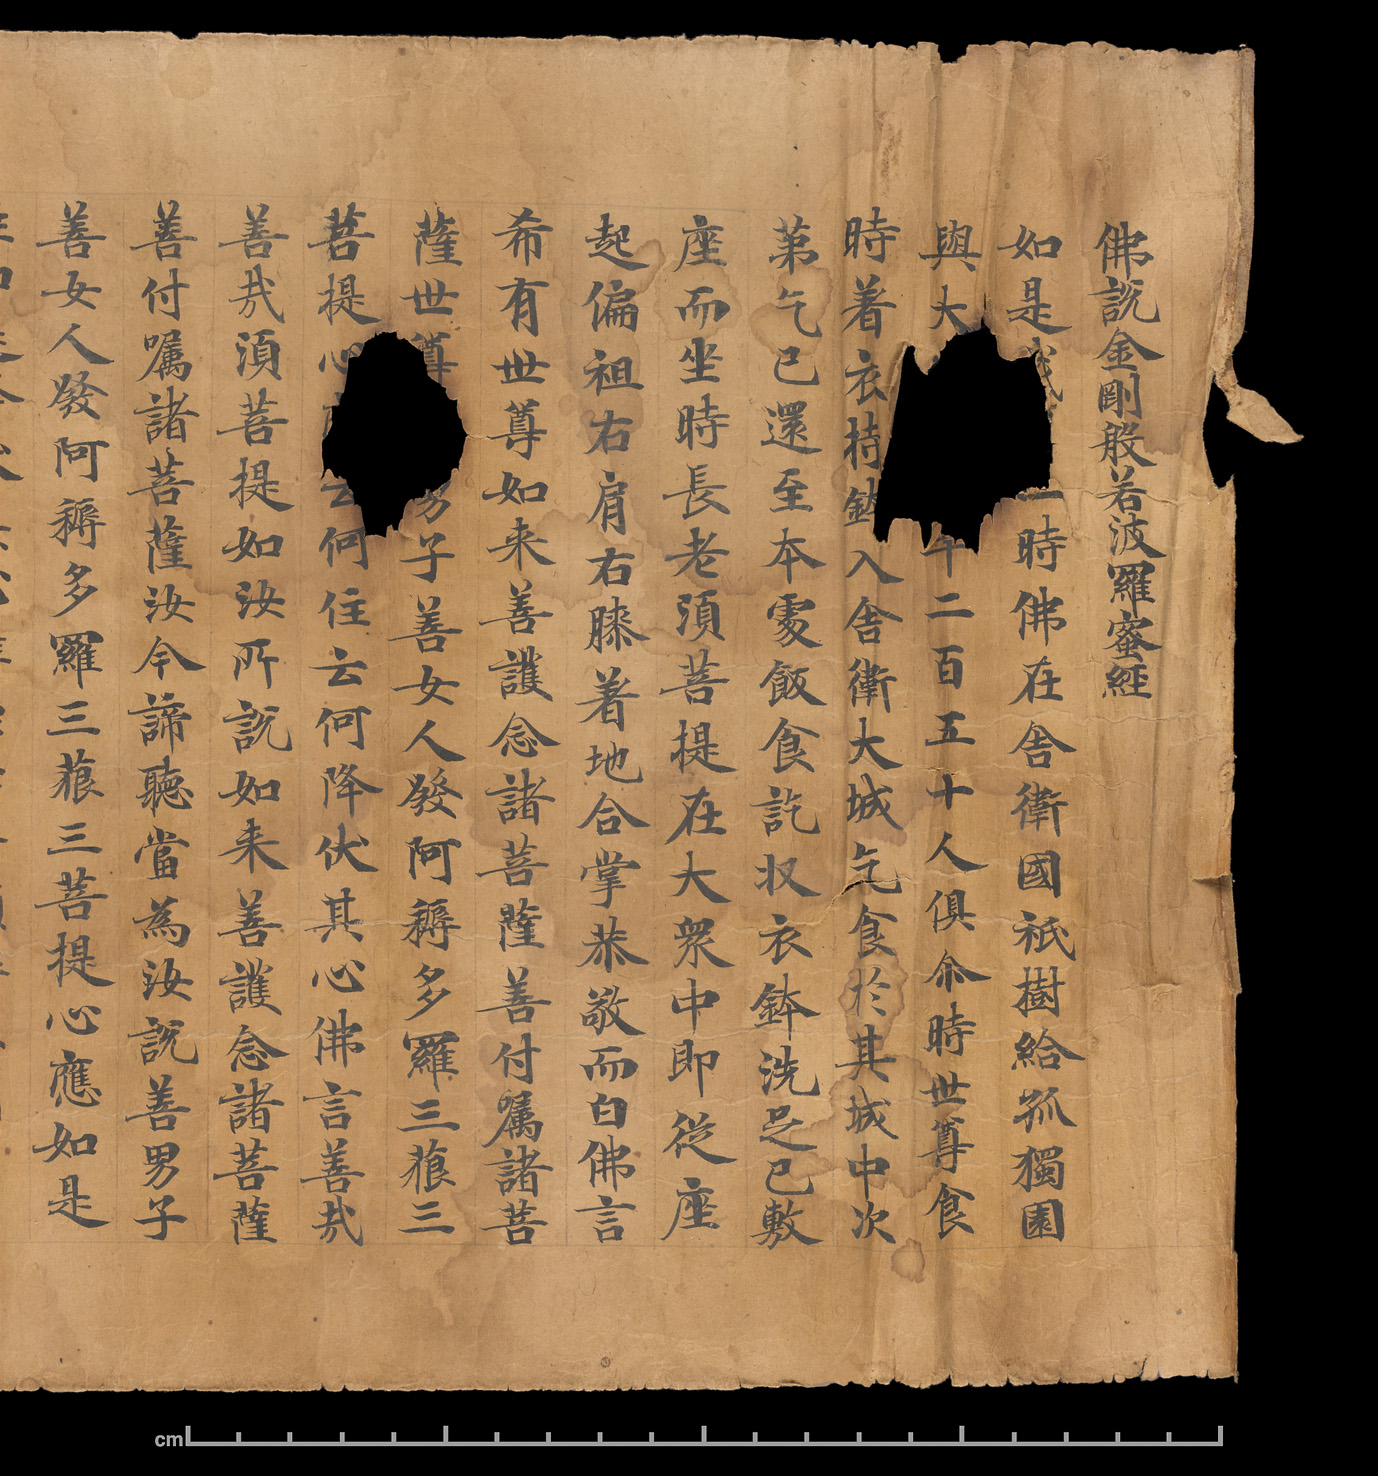 佛說金剛般若波羅蜜經
如是我一時佛在舍衛國祇樹給孤獨園
與大千二百五十人俱尒時世尊食
時着衣持鉢入舍衛大城乞食於其城中次
苐乞已還至本處飯食訖収衣鉢洗足已敷
座而坐時長老湏菩提在大衆中即從座
起偏袒右肩右膝着地合掌恭敬而白佛言
希有世尊如来善護念諸菩薩善付囑諸菩
薩世尊男子善女人發阿耨多羅三藐三
菩提心云何住云何降伏其心佛言善哉
善哉湏菩提如汝所說如来善護念諸菩薩
善付囑諸菩薩汝今諦聽當為汝說善男子
善女人發阿耨多羅三藐三菩提心應如是
cm